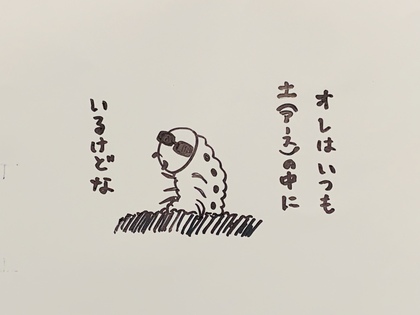 オレはいつも
土(アース)の中に
いるけどな